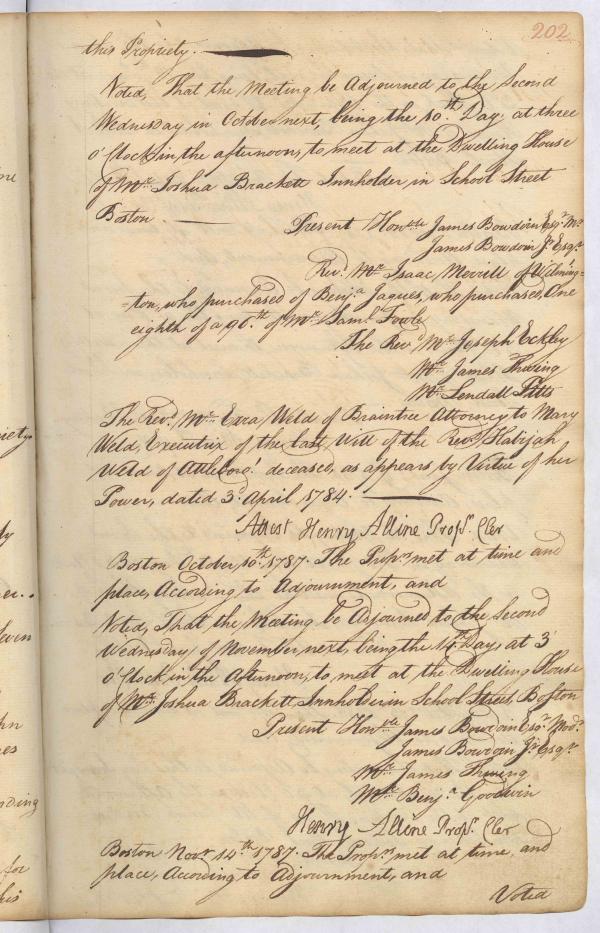 202
this Propriety.
Voted, That the Meeting be Adjourned to the Second
Wednesday in October next, being the 10th. Day, at three
o'Clock in the afternoon, to meet at the Dwelling House
of Mr. Joshua Brackett Innholder in School Street
Boston.
Present Honble James Bowdoin Esqr. Mo
James Bowdoin Jr. Esqr.
Revd. Mr. Isaac Morrill of Wilming=
=ton, who purchased of Benja. Jaques, who purchased, One
eighth of a 96th. of Mr. Saml. Fowle
The Revd. Mr. Joseph Eckley
Mr. James Thwing
Mr. Lendall Pitts
The Revd. Mr. Ezra Weld of Braintree Attorney to Mary
Weld, Executrix of the Last Will of the Revd. Habijah
Weld of Attleboro' deceased, as appears by Virtue of her
Power, dated 3d. April 1784.
Attest Henry Alline Props. Cler
Boston October 10th. 1787. The Proprs. met at time and
place, According to Adjournment, and
Voted, That the Meeting be Adjourned, to the Second
Wednesday of November next, being the 14th. Day, at 3
o'Clock, in the Afternoon, to meet at the Dwelling House
of Mr. Joshua Brackett, Innholder in School Street, Boston
Present Honble James Bowdoin Esqr. Modr.
James Bowdoin Jr. Esqr.
Mr. James Thwing
Mr. Benja. Goodwin
Henry Alline Props. Cler
Boston Novr. 14th. 1787. The Proprs. met at time, and
place, According to Adjournment, and
Voted
iety
ly
er..
even
hn
es
nding
for
his